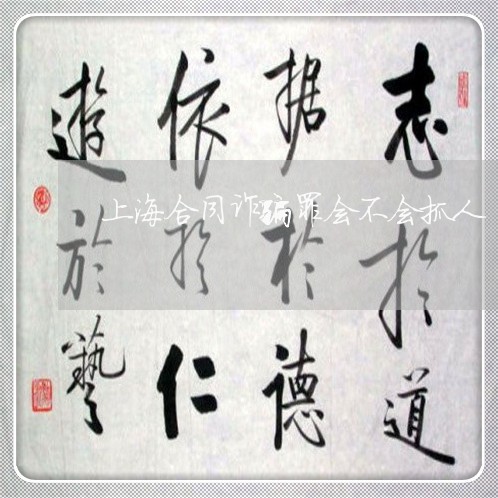 志於道
据於德
依於仁
遊於藝
上海合同诈骗罪会不会抓人